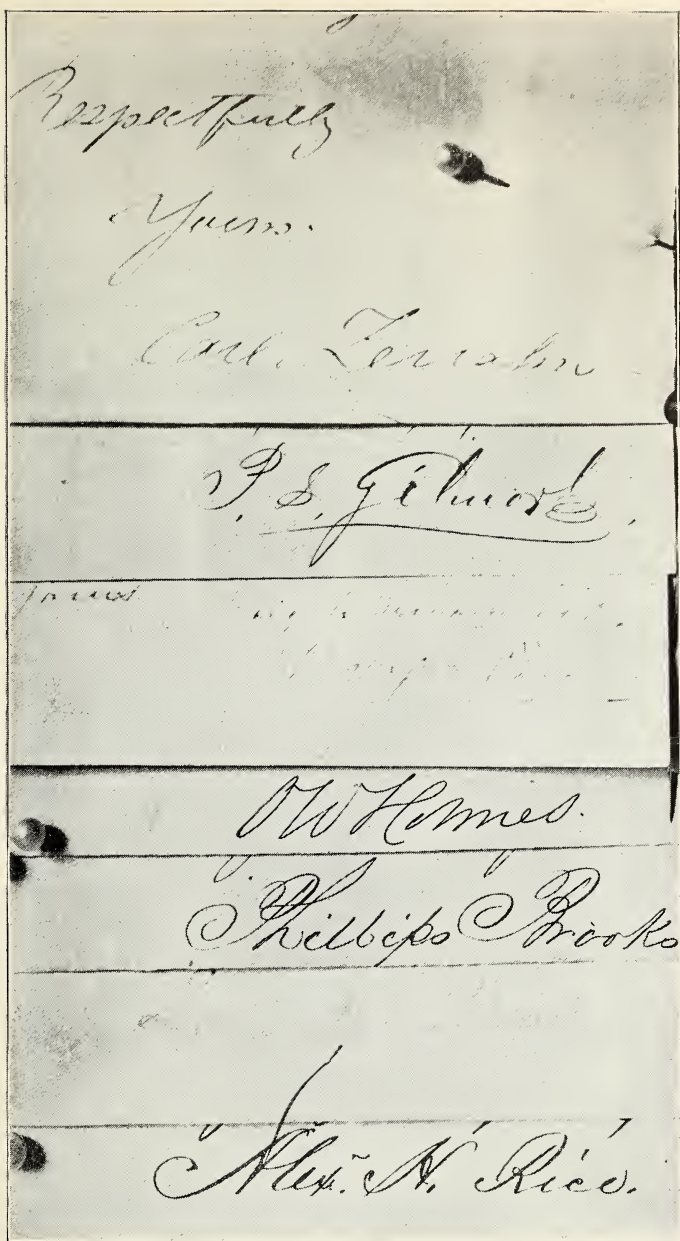 Respectfully
Yours.
Carl. Zerrahn
P. S. Gilmore.
Yours
O W Holmes.
Phillips Brooks
Alex. H. Rice.